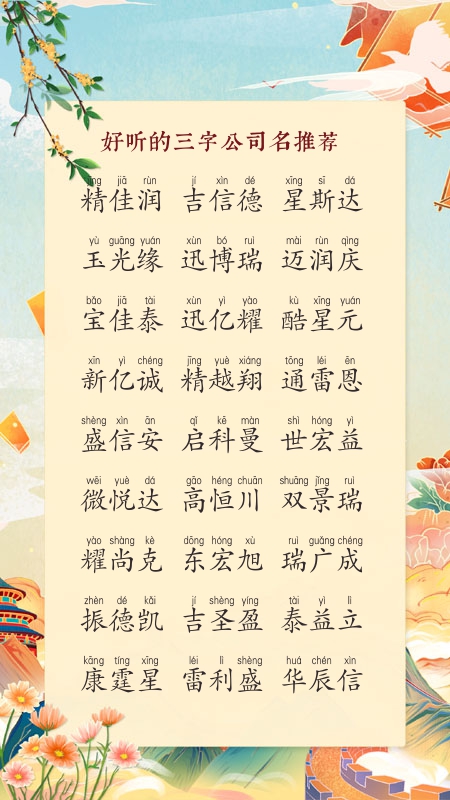 好听的三字公司名推荐
jīng jiā rùn jí xìn dé xīng sī dá
精佳润 吉信德 星斯达
yù guāng yuán xùn bó ruì mài rùn qìng
玉光缘 迅博瑞 迈润庆
bǎo jiā tài xùn yì yào kù xīng yuán
宝佳泰 迅亿耀 酷星元
xīn yì chéng jīng yuè xiáng tōng léi ēn
新亿诚 精越翔 通雷恩
shèng xìn ān qǐ kē màn shì hóng yì
盛信安 启科曼 世宏益
wēi yuè dá gāo héng chuān shuāng jǐng ruì
微悦达 高恒川 双景瑞
yào shàng kè dōng hóng xù ruì guǎng chéng
耀尚克 东宏旭 瑞广成
zhèn dé kǎi jí shèng yíng tài yì lì
振德凯 吉圣盈 泰益立
kāng tíng xīng léi lì shèng huá chén xìn
康霆星 雷利盛 华辰信